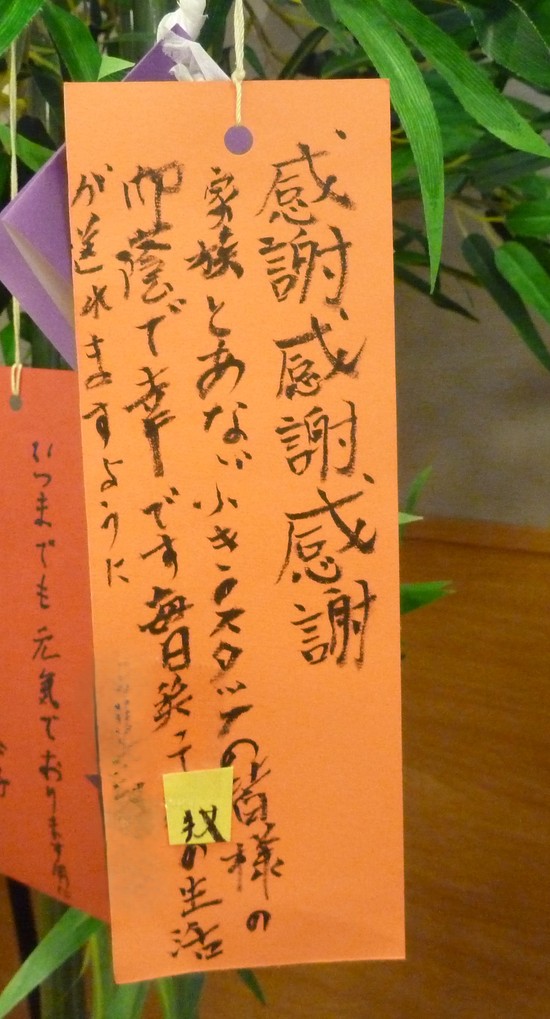 感謝、感謝、感謝
家族とあなぶきのスタッフの皆様の
御蔭で幸です毎日笑っての生活
が送れますように
いつまでも元気でおります様に